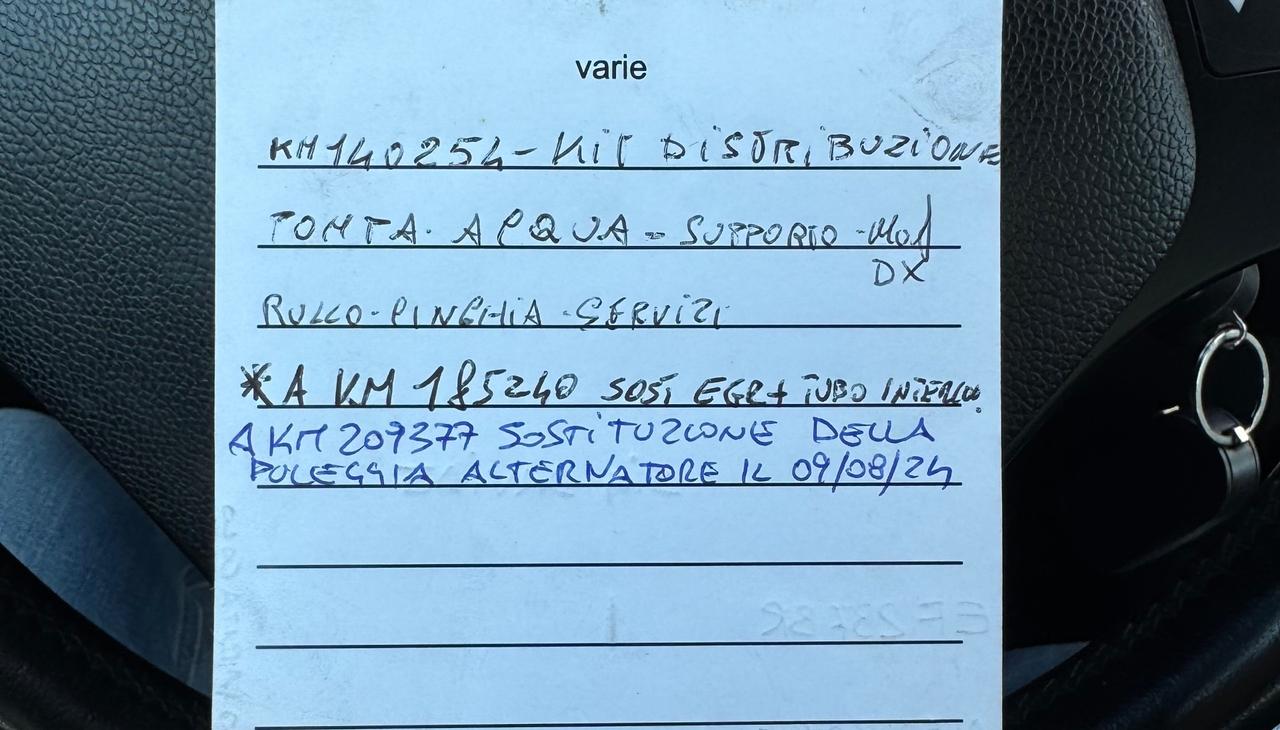 varie
KM 140254 - KIT DISTRIBUZIONE
POMPA. ACQUA - SUPPORTO - Mot
DX
RULLO - CINGHIA - SERVIZI
* A KM 185240 SOST EGR + TUBO INTERCO.
A KM 209377 SOSTITUZIONE DELLA
PULEGGIA ALTERNATORE IL 09/08/24